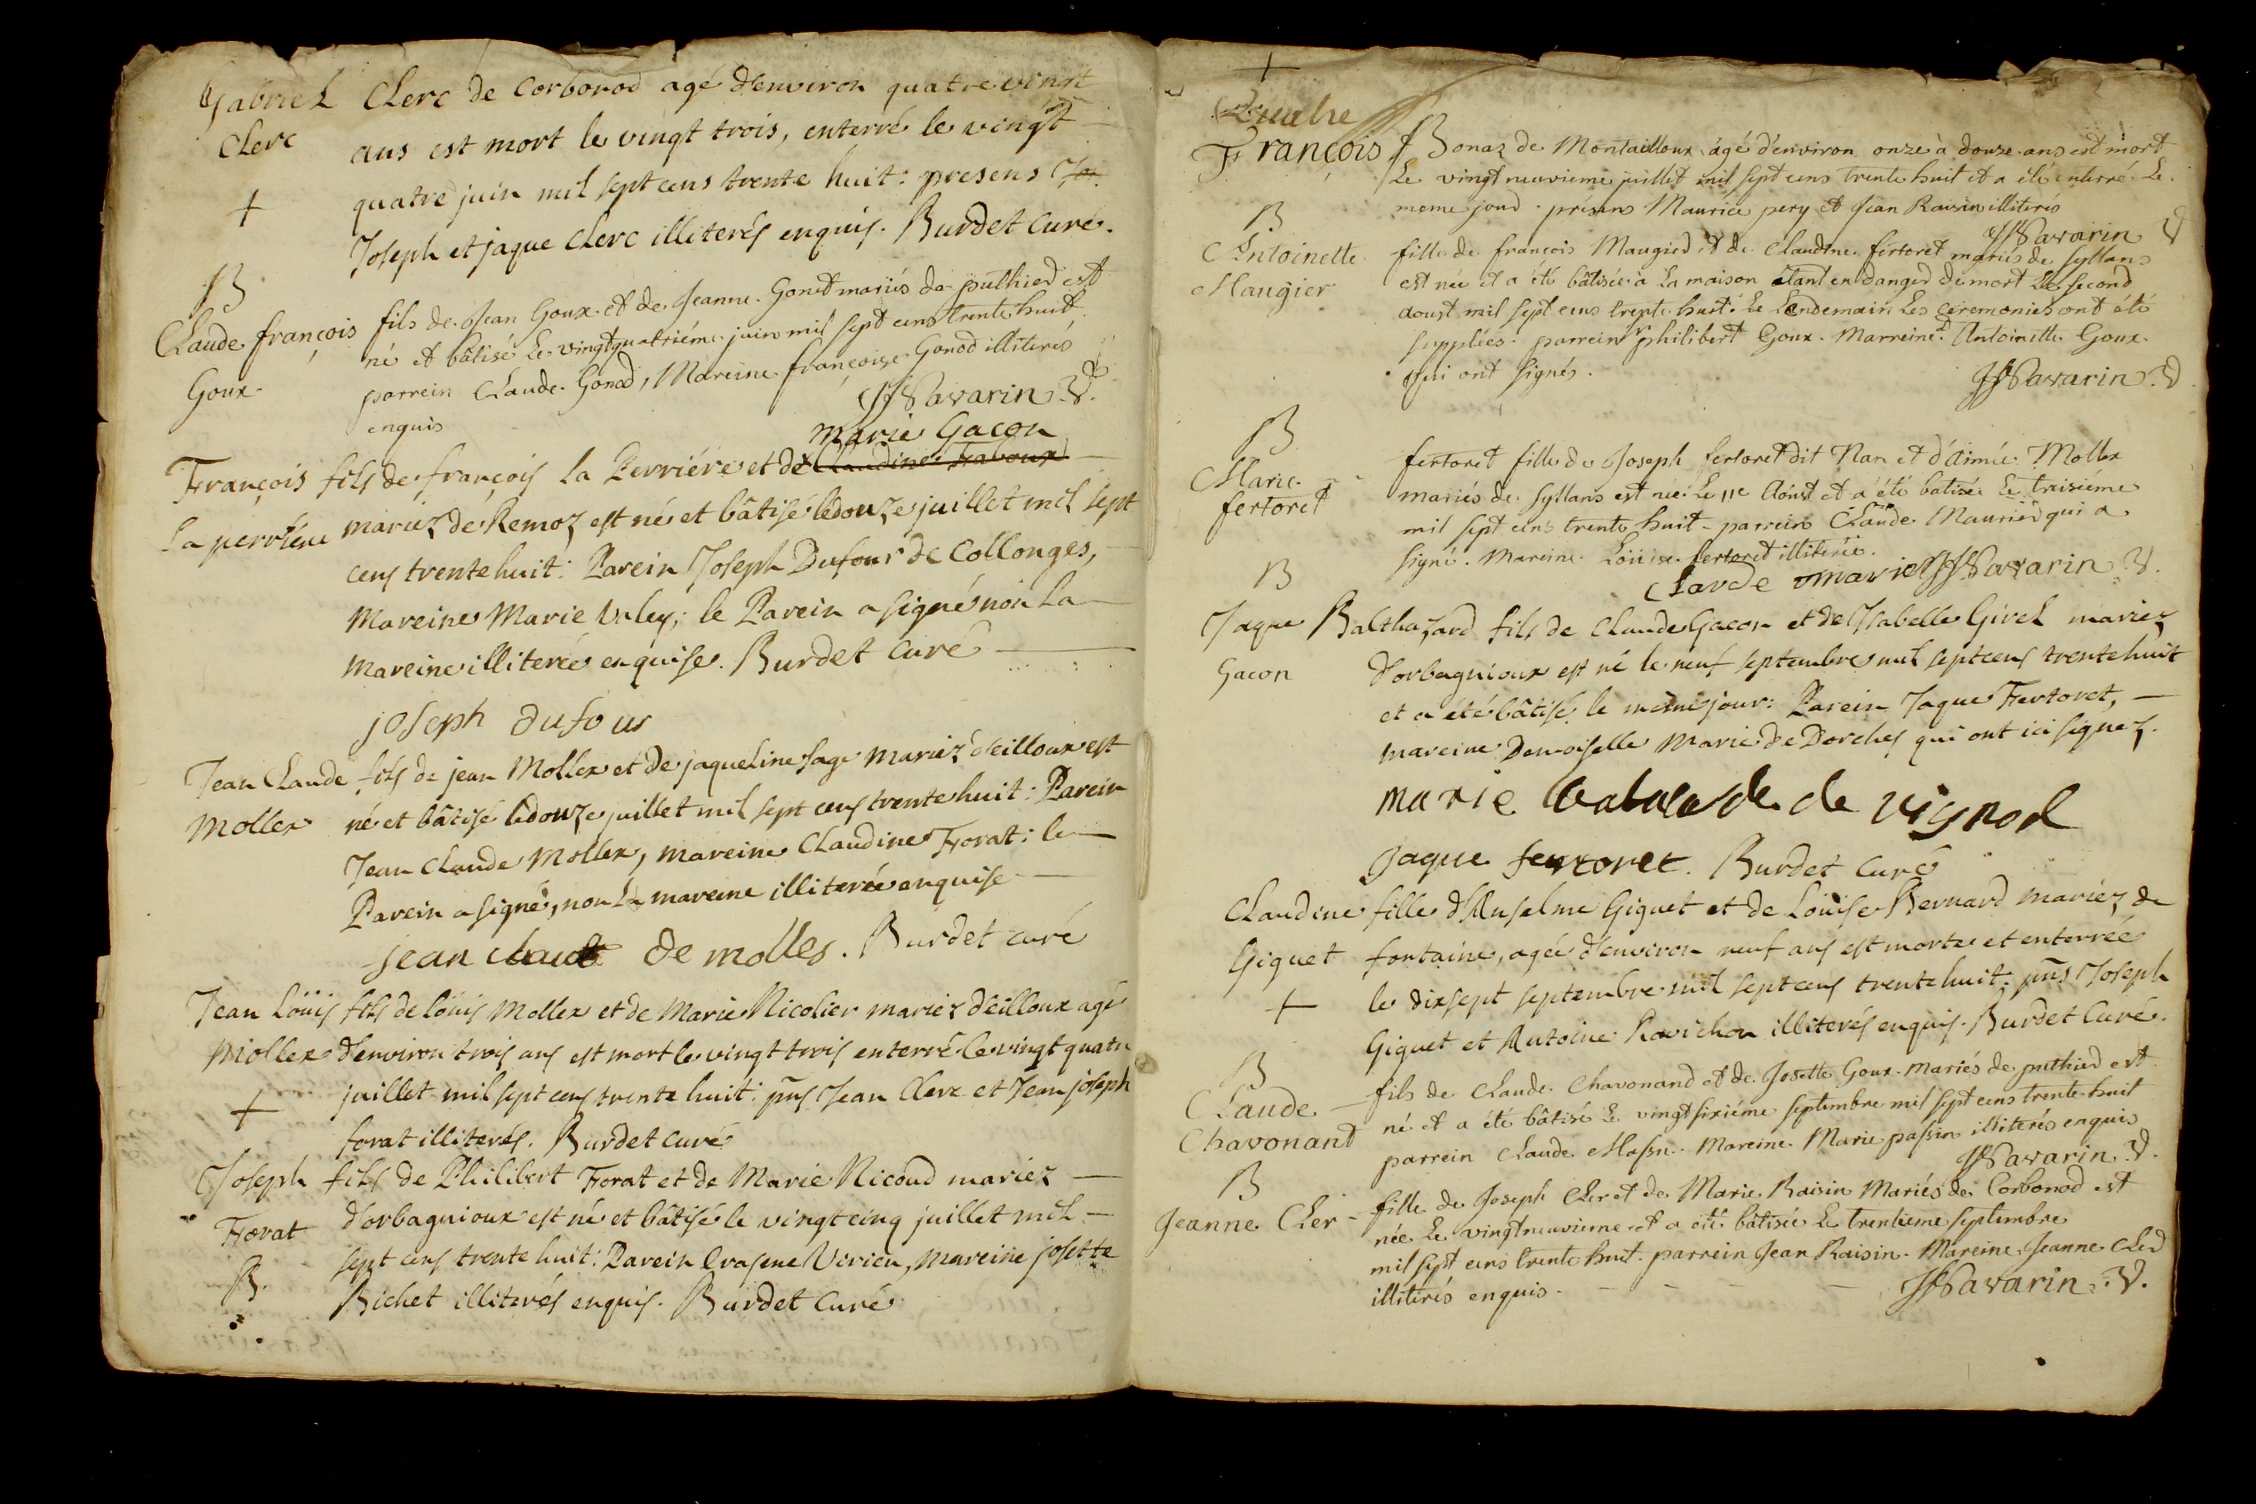 Gabriel Clerc de Corbonod agé denviron quatre vingt
Clerc ans est mort le vingt trois, enterré le vingt
+ quatre juin mil sept cens trente huit : presens
Joseph et jaque Clerc illiterés enquis. Burdet Curé.
B
Claude françois fils de Jean Goux et de Jeanne Gonet mariés de puthied est
Goux né et bâtisé le vingtquatriéme juin mil sept cens trente huit
parrein Claude Gonod, Mareine françoise Gonod illiterés
enquis Savarin V.
Marie Gacon
François fils de françois la Perriére et de Claudine Travoux
la perriére mariez de Remoz est né et bâtisé le douze juillet mil sept
cens trente huit : Parein Joseph Dufour de Collonges,
Mareine Marie Valey; le Parein a signé non la
Mareine illiterée enquise. Burdet Curé
joseph dufour
Jean Claude fils de jean Mollex et de jaqueline sage mariez d'eilloux est
Mollex né et bâtisé le douze juillet mil sept cens trente huit : Parein
Jean Claude Mollex, mareine Claudine Forat : le
Parein a signé, non la mareine illiterée enquise
jean claude de molles. Burdet curé
Jean Loüis fils de loüis Mollex et de Marie Nicolier mariez d'eilloux agé
Mollex d'environ trois ans est mort le vingt trois enterré le vingt quatre
+ juillet mil sept cens trente huit : pns Jean Clerc et Jean joseph
forat illiterés. Burdet curé
Joseph fils de Philibert Forat et de Marie Nicoud mariez
Forat d'orbagnioux est né et bâtisé le vingt cinq juillet mil
B. sept cens trente huit : Parein Erasme Virieu, mareine josette
Bichet illiterés enquis. Burdet Curé
+
François Bonaz de Montailloux âgé d'environ onze à douze ans est mort
Le vingt neuvieme juillet mil sept cens trente huit et a été enterré Le
meme jour. présens Maurice pery et Jean Raisin illiterés
B Savarin V
Antoinette fille de françois Maugier et de Claudine fertoret mariés de syllans
Maugier est née et a été bâtisée à La maison étant en danger de mort Le second
aoust mil sept cens trente huit. Le Lendemain Les ceremonies ont été
suppléés. parrein Sr philibert Goux. Marreine Antoinette Goux
qui ont signés. Savarin V
B
Marie fertoret fille de Joseph fertoret dit Nan et d'aimée Mollex
fertoret mariés de syllans est née Le 11e Aoust et a été batisée Le treisieme
mil sept cens trente huit. parrein Claude Mauried qui a
signé. Mareine Loüise fertoret illiterée.
B Clavde mavrie Savarin V.
Jaque Balthazard fils de Claude Gacon et de Isabelle Givel mariez
Gacon d'orbagnioux est né le neuf septembre mil sept cens trente huit
et a été bâtisé le meme jour : Parein Jaque Fertoret,
mareine Demoiselle Marie de Dorches qui ont ici signez.
marie de vignod
jaque fertoret. Burdet Curé
Claudine fille d'Anselme Giguet et de Loüise Bernard mariez de
Giguet fontaine, agée d'environ neuf ans est morte et enterrée
+ le dixsept septembre mil sept cens trente huit ; pns Joseph
Giguet et Antoine Ravichon illiterés enquis. Burdet Curé.
B
Claude fils de Claude Chavonand et de Josette Goux mariés de puthied est
Chavonant né et a été bâtisé Le vingt sixiéme septembre mil sept cens trente huit
parrein Claude Massn. Mareine Marie passin illiterés enquis
B Savarin V.
Jeanne Cler fille de Joseph Cler et de Marie Raisin Mariés de Corbonod est
née Le vingt neuvieme et a été bâtisée Le trentieme septembre
mil sept cens trente huit. parrein Jean Raisin. Mareine Jeanne Cler
illiterés enquis. Savarin V.